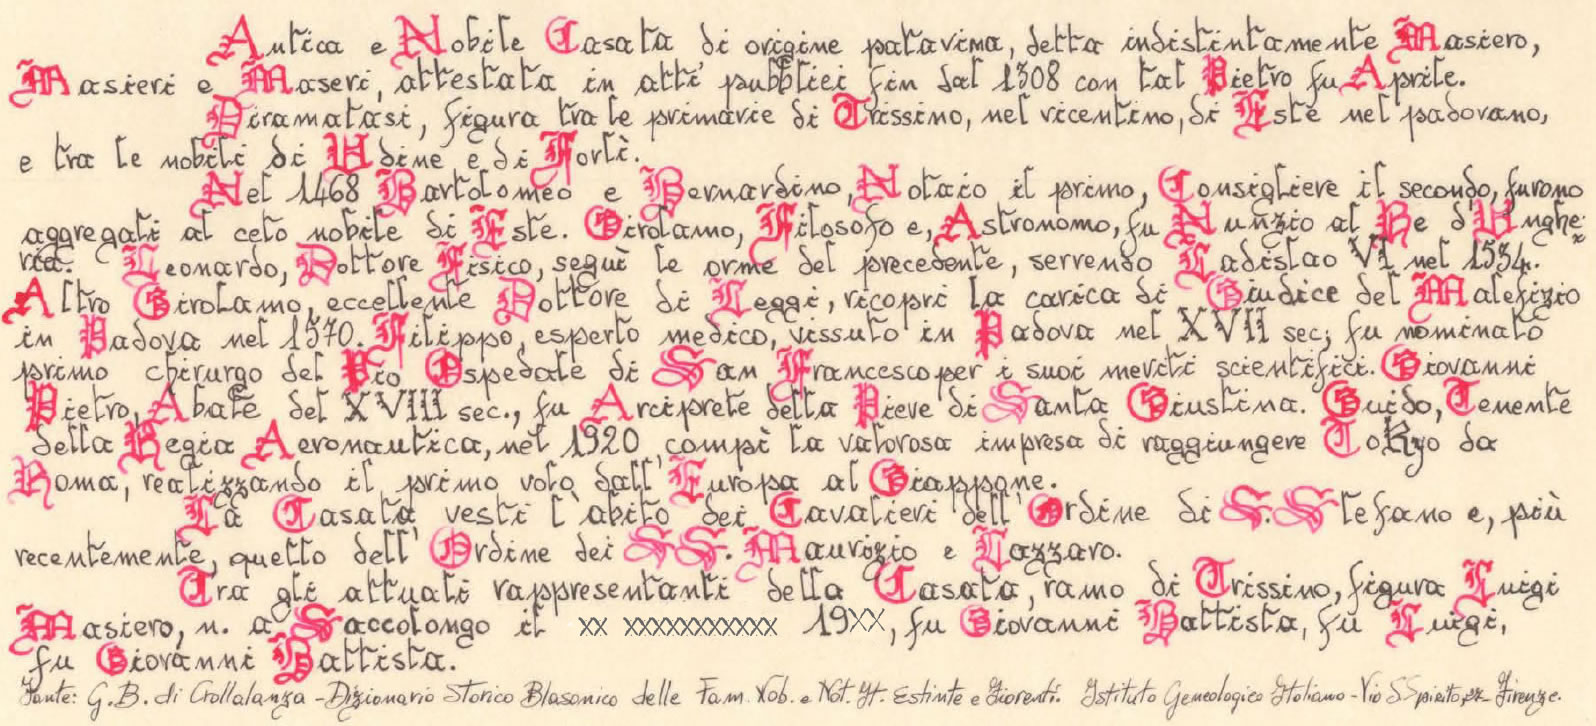 Antica e Nobile Casata di origine patavina, detta indistintamente Masiero,
Masieri e Maseri, attestata in atti pubblici fin dal 1308 con tal Pietro fu Aprile.
Diramatasi, figura tra le primarie di Trissino, nel vicentino, di Este nel padovano,
e tra le nobili di Udine e di Forlì.
Nel 1468 Bartolomeo e Bernardino, Notaio il primo, Consigliere il secondo, furono
aggregati al ceto nobile di Este. Girolamo, Filosofo e, Astronomo, fu Nunzio al Re d'Unghe-
ria. Leonardo, Dottore Fisico, seguì le orme del precedente, servendo Ladislao VI nel 1534.
Altro Girolamo, eccellente Dottore di Leggi, ricoprì la carica di Giudice del Malefizio
in Padova nel 1570. Filippo, esperto medico, vissuto in Padova nel XVII sec; fu nominato
primo chirurgo del Pio Ospedale di San Francesco per i suoi meriti scientifici. Giovanni
Pietro, Abate del XVIII sec., fu Arciprete della Pieve di Santa Giustina. Guido, Tenente
della Regia Aeronautica, nel 1920 compì la valorosa impresa di raggiungere Tokyo da
Roma, realizzando il primo volo dall'Europa al Giappone.
La Casata vestì l'abito dei Cavalieri dell'Ordine di S. Stefano e, più
recentemente, quello dell'Ordine dei SS. Maurizio e Lazzaro.
Tra gli attuali rappresentanti della Casata, ramo di Trissino, figura Luigi
Masiero, n. a Saccolongo il xx xxxxxxxxxxx 19XX, fu Giovanni Battista, fu Luigi,
fu Giovanni Battista.
Fonte: G.B. di Crollalanza - Dizionario Storico Blasonico delle Fam. Nob. e Not. It. Estinte e Fiorenti. Istituto Geneologico Italiano - Via S Spirito, Firenze.